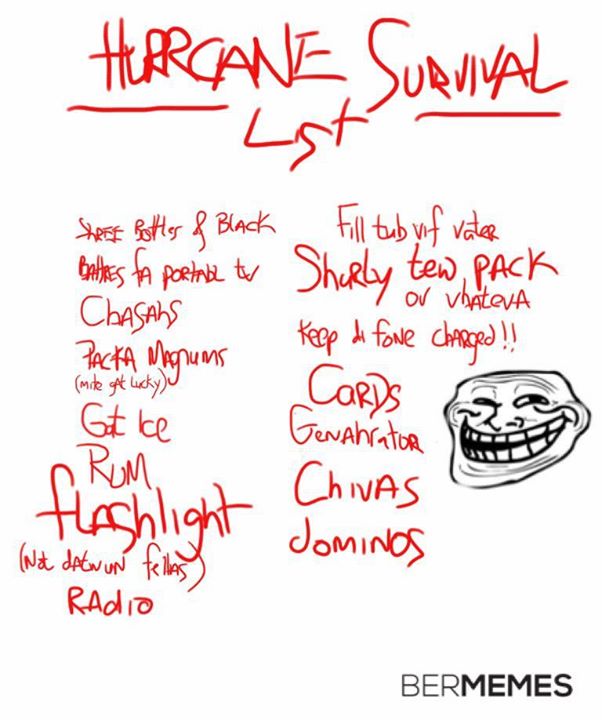 HURRCANE SURVIVAL
List
Shree Bottles of BLACK
BAttRES fA PORtABL tv
ChASAhS
PACKA MAgnums
(mite get lucky)
Got Ice
RUM
flashlight
(Not dAtwUN fellas)
RAdio
Fill tub vif vater
Shurly tew PACK
or vhatevA
Keep di fone chARged!!
CARDs
GenAhratoR
ChIVAS
dominos
BERMEMES